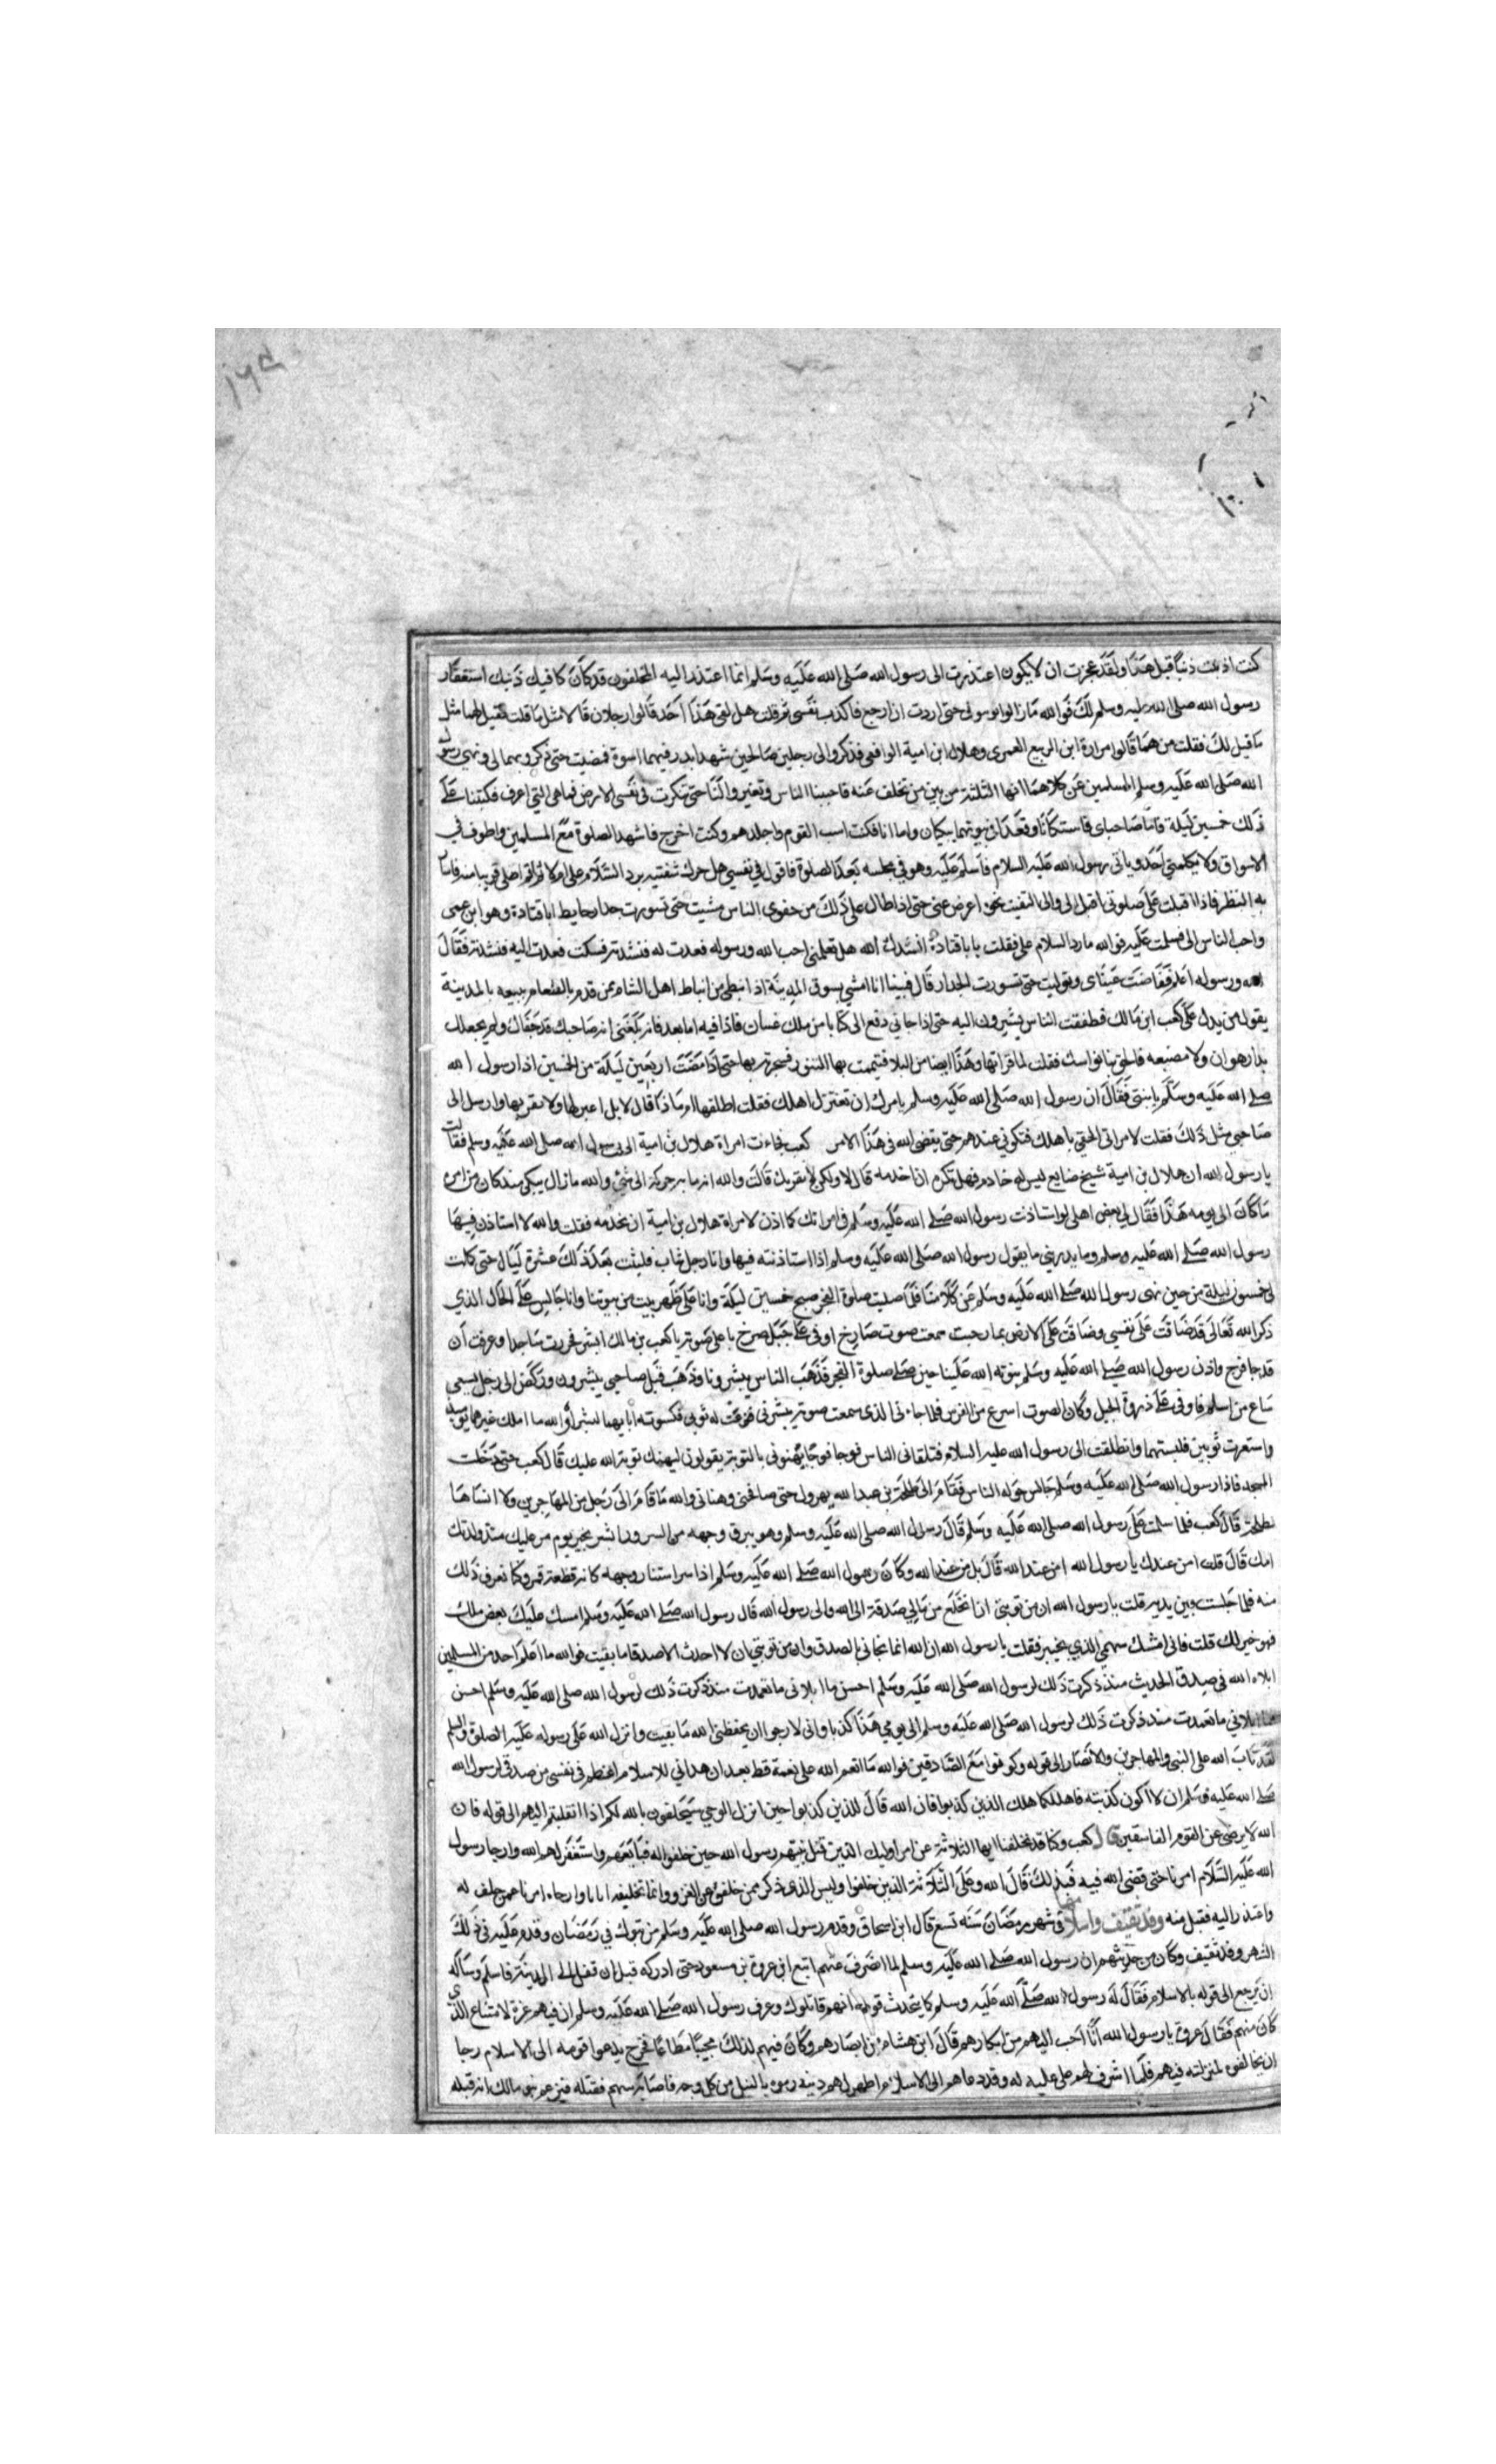 ١٦٩
كنت اذنبت ذنبا قبل هذا ولقد عجزت ان لا يكون اعتذرت الى رسول الله صلى الله عليه وسلم انما اعتذر اليه المخلفون قد كان كافيك ذنبك استغفار
رسول الله صلى الله عليه وسلم لك فوالله مازالوا بوسولى حتى اردت ان ارجع فاكذب نفسى ثم قلت هل لقى هذا احد قالوا رجلان قالا مثل ما قلت فقيل لهما مثل
ما قيل لك فقلت من هما قالوا مرارة ابن الربيع العمرى وهلال ابن امية الواقفى فذكروا لى رجلين صالحين شهدا بدر فيهما اسوة فمضيت حتى ذكروهما لى ونهى رسول
الله صلى الله عليه وسلم المسلمين عن كلامنا ايها الثلثة من بين من تخلف عنه فاجبنا الناس وتغيروا لنا حتى تنكرت فى نفسى الارض فما هى التى اعرف فكبثنا على
ذلك خمسين ليلة فاما صاحباى فاستكانا وقعدا فى بيوتهما يبكيان واما انا فكنت اسب القوم واجلدهم وكنت اخرج فاشهد الصلوة مع المسلمين واطوف فى
الاسواق ولا يكلمنى احد وياتى رسول الله عليه السلام فاسلم عليه وهو فى مجلسه بعد الصلوة فاقول فى نفسى هل حرك شفتيه برد السلام على ام لا ثم اصلى قريبا منه فاسا
به النظر فاذا اقبلت على صلوتى اقبل الى والى التفيت نحوه اعرض عنى حتى اذا طال على ذلك من جفوى الناس مشيت حتى تسورت جدار حايط ابا قتادة وهو ابن عمى
واحب الناس الى فسلمت عليه فوالله ما رد السلام على فقلت يا با قتادة انشدك الله هل تعلمنى احب الله ورسوله فعدت له فنشدته فسكت فعدت اليه فنشدته فقال
الله ورسوله اعلم ففاضت عيناى وتوليت حتى تسورت الجدار قال فبينا انا امشى بسوق المدينة اذا نبطى من انباط اهل الشام من قدم بالطعام يبيعه بالمدينة
يقول من يدل على كعب ابن مالك فطفقت الناس يشيرون اليه حتى اذا جانى دفع الى كتابا من ملك غسان فاذا فيه اما بعد فانه بلغنى انه صاحبك قد جفاك ولم يجعلك
بدار هوان ولا مضيعه فالحق بنا نواسك فقلت لما قراتها وهذا ايضا من البلا فتيممت بها التنور فسجرته بها حتى اذا مضت اربعين ليلة من الخمسين اذا رسول الله
صلى الله عليه وسلم ياتينى فقال ان رسول الله صلى الله عليه وسلم يامرك ان تعتزل اهلك فقلت اطلقها ام ماذا قال لا بل اعتزلها ولا تقربها وارسل الى
صاحبى مثل ذلك فقلت لامراتى الحقى باهلك فتكونى عندهم حتى يقضى الله فى هذا الامر كعب فجاءت امراة هلال بن امية الى رسول الله صلى الله عليه وسلم فقالت
يا رسول الله ان هلال بن امية شيخ ضايع ليس له خادم فهل تكره ان اخدمه قال لا ولكن لا يقربك قالت والله انه ما به حركة الى شئ والله ما زال يبكى منذ كان من امره
ما كان الى يومه هذا فقال لى بعض اهلى لو استاذنت رسول الله صلى الله عليه وسلم فى امراتك كما اذن لامراة هلال بن امية ان تخدمه فقلت والله لا استاذن فيها
رسول الله صلى الله عليه وسلم وما يدرينى ما يقول رسول الله صلى الله عليه وسلم اذا استاذنته فيها وانا رجل شاب فلبثت بعد ذلك عشرة ليال حتى كملت
لى خمسون ليلة من حين نهى رسول الله صلى الله عليه وسلم عن كلامنا فلما صليت صلوة الفجر صبح خمسين ليلة وانا على ظهر بيت من بيوتنا وانا جالس على الحال الذى
ذكر الله تعالى قد ضاقت على نفسى وضاقت على الارض بما رحبت سمعت صوت صارخ اوفى على جبل صرخ باعلى صوته يا كعب بن مالك ابشر فخررت ساجدا وعرفت ان
قد جا فرج واذن رسول الله صلى الله عليه وسلم بتوبة الله علينا حين صلى صلوة الفجر فذهب الناس يبشرونا وذهب قبل صاحبى يبشرون وركض الى رجل يسعى
ساع من اسلم فاوفى على ذروة الجبل وكان الصوت اسرع من الفرس فلما جاءنى الذى سمعت صوته يبشرنى فنزعت له ثوبى فكسوته اياهما لبشراه والله ما املك غيرهما يوميذ
واستعرت ثوبين فلبستهما وانطلقت الى رسول الله عليه السلام فتلقانى الناس فوجا فوجا يهنونى بالتوبة يقولون ليهنك توبة الله عليك قال كعب حتى دخلت
المسجد فاذا رسول الله صلى الله عليه وسلم جالس حوله الناس فقام الى طلحة بن عبد الله يهرول حتى صافحنى وهنانى والله ما قام الى رجل من المهاجرين ولا انساها
لطلحة قال كعب فلما سلمت على رسول الله صلى الله عليه وسلم قال رسول الله صلى الله عليه وسلم وهو يبرق وجهه من السرور ابشر بخير يوم مر عليك منذ ولدتك
امك قال قلت امن عندك يا رسول الله امن عند الله قال بل من عند الله وكان رسول الله صلى الله عليه وسلم اذا سر استنار وجهه كانه قطعة قمر وكنا نعرف ذلك
منه فلما جلست بين يديه قلت يا رسول الله ان من توبتى ان انخلع من مالى صدقة الى الله والى رسول الله قال رسول الله صلى الله عليه وسلم امسك عليك بعض مالك
فهو خير لك قلت فانى امسك سهمى الذى بخيبر فقلت يا رسول الله ان الله انما نجانى بالصدق وان من توبتى ان لا احدث الا صدقا ما بقيت فوالله ما اعلم احد من المسلمين
ابلاه الله فى صدق الحديث منذ ذكرت ذلك لرسول الله صلى الله عليه وسلم احسن ما ابلانى ما تعمدت منذ ذكرت ذلك لرسول الله صلى الله عليه وسلم احسن
مما ابلانى ما تعمدت منذ ذكرت ذلك لرسول الله صلى الله عليه وسلم الى يومى هذا كذبا وانى لارجوا ان يحفظنى الله ما بقيت وانزل الله على رسوله عليه الصلوة والسلم
لقد تاب الله على النبى والمهاجرين والانصار الى قوله وكونوا مع الصادقين فوالله ما انعم الله على نعمة قط بعد ان هدانى للاسلام اعظم فى نفسى من صدقى لرسول الله
صلى الله عليه وسلم ان لا اكون كذبته فاهلك كما هلك الذين كذبوا فان الله قال للذين كذبوا حين انزل الوحى سيحلفون بالله لكم اذا انقلبتم اليهم الى قوله فان
الله لا يرضى عن القوم الفاسقين قال كعب وكنا قد تخلفنا ايها الثلاثة عن امر اوليك الذين قبل منهم رسول الله حين حلفوا له فبايعهم واستغفر لهم الله وارجا رسول
الله عليه السلام امرنا حتى قضى الله فيه فبذلك قال الله وعلى الثلاثة الذين خلفوا وليس الذى ذكر ممن خلفنا عن الغزو وانما تخليفه ايانا وارجاءه امرنا عمن حلف له
واعتذر اليه فقبل منه وفد ثقيف واسلامهم فى شهر رمضان سنه تسع قال ابن اسحاق وقدم رسول الله صلى الله عليه وسلم من تبوك فى رمضان وقدم عليه فى ذلك
الشهر وفد ثقيف وكان من حديثهم ان رسول الله صلى الله عليه وسلم لما انصرف عنهم اتبع اثره عروة بن مسعود حتى ادركه قبل ان تصل الى المدينة فاسلم وساله
ان يرجع الى قومه بالاسلام فقال له رسول الله صلى الله عليه وسلم كما يتحدث قومه انهم قاتلوك وعرف رسول الله صلى الله عليه وسلم ان فيهم عزة لامتناع الذى
كان منهم فقال عروة يا رسول الله انا احب اليهم من ابكارهم قال ابن هشام من ابصارهم وكان فيهم لذلك محببا مطاعا فخرج يدعوا قومه الى الاسلام رجا
ان يخالفوه لمنزلته فيهم فلما اشرف لهم على عليه له وقد دعاهم الى الاسلام واظهر لهم دينه رموه بالنبل من كل وجه فاصابه سهم فقتله